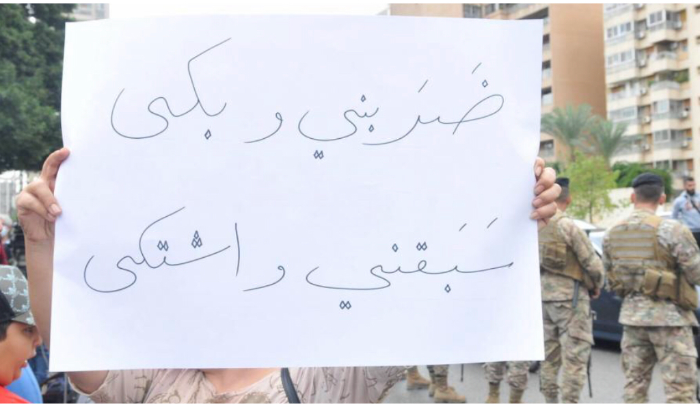 ضَرَبني و بكى
سَبَقني و اشتكى